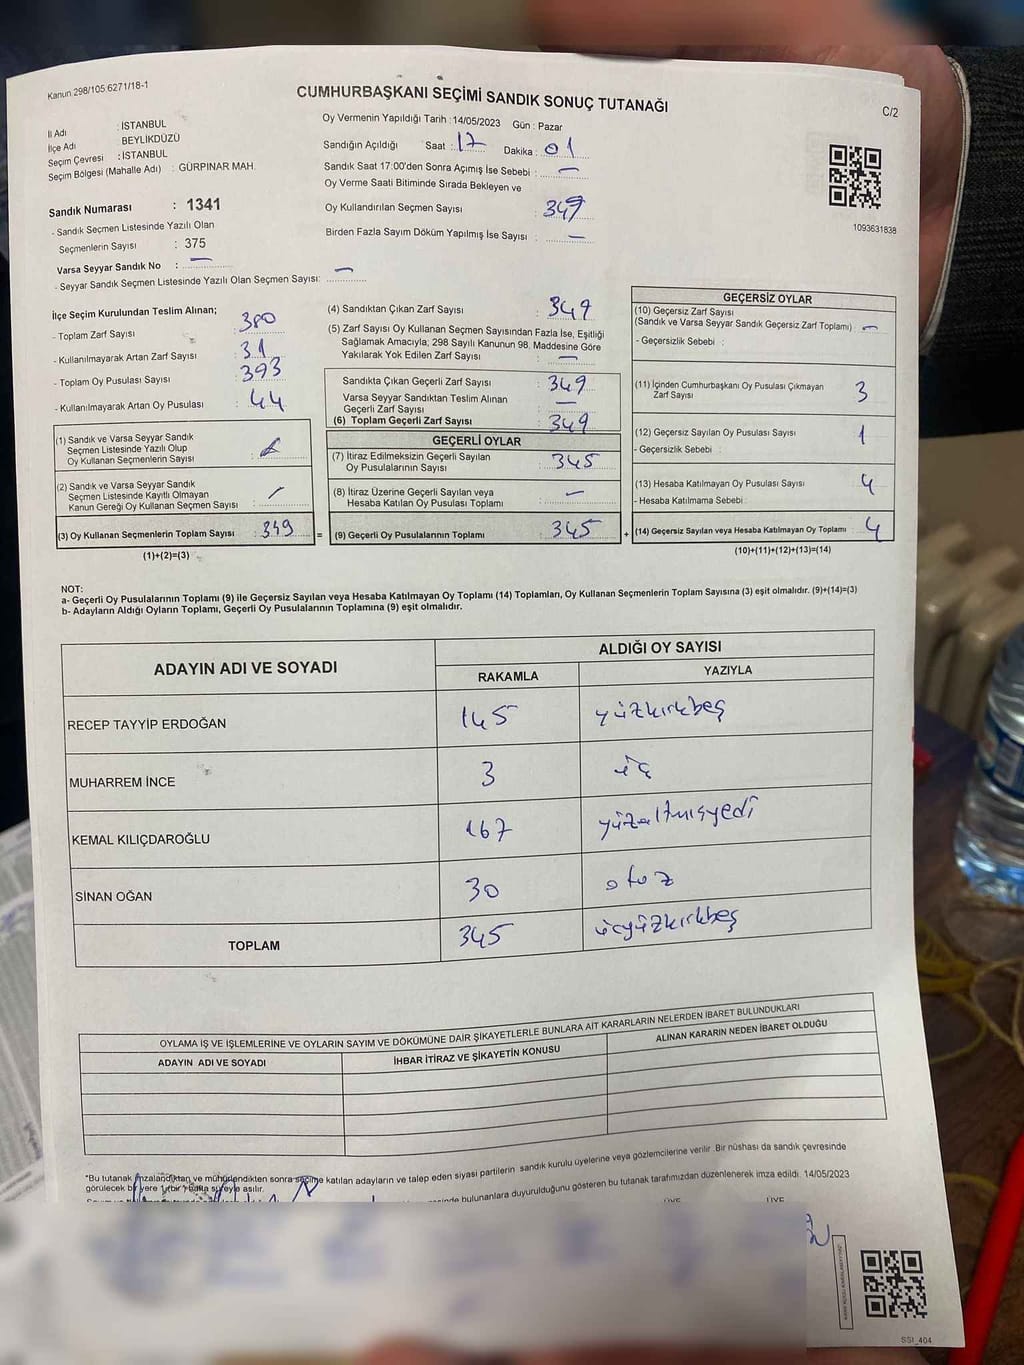 Kanun 298/105 6271/18-1
CUMHURBAŞKANI SEÇİMİ SANDIK SONUÇ TUTANAĞI
C/2
İl Adı : İSTANBUL
İlçe Adı : BEYLİKDÜZÜ
Seçim Çevresi : İSTANBUL
Seçim Bölgesi (Mahalle Adı) : GÜRPINAR MAH.
Sandık Numarası : 1341
- Sandık Seçmen Listesinde Yazılı Olan
Seçmenlerin Sayısı : 375
Varsa Seyyar Sandık No : —
- Seyyar Sandık Seçmen Listesinde Yazılı Olan Seçmen Sayısı: —
Oy Vermenin Yapıldığı Tarih : 14/05/2023 Gün : Pazar
Sandığın Açıldığı Saat : 17 Dakika : 01
Sandık Saat 17:00'den Sonra Açımış İse Sebebi : —
Oy Verme Saati Bitiminde Sırada Bekleyen ve
Oy Kullandırılan Seçmen Sayısı : 349
Birden Fazla Sayım Döküm Yapılmış İse Sayısı : —
1093631838
İlçe Seçim Kurulundan Teslim Alınan;
- Toplam Zarf Sayısı : 380
- Kullanılmayarak Artan Zarf Sayısı : 31
- Toplam Oy Pusulası Sayısı : 393
- Kullanılmayarak Artan Oy Pusulası : 44
(1) Sandık ve Varsa Seyyar Sandık
Seçmen Listesinde Yazılı Olup
Oy Kullanan Seçmenlerin Sayısı :
(2) Sandık ve Varsa Seyyar Sandık
Seçmen Listesinde Kayıtlı Olmayan
Kanun Gereği Oy Kullanan Seçmen Sayısı : /
(3) Oy Kullanan Seçmenlerin Toplam Sayısı : 349
(1)+(2)=(3)
(4) Sandıktan Çıkan Zarf Sayısı : 349
(5) Zarf Sayısı Oy Kullanan Seçmen Sayısından Fazla İse, Eşitliği
Sağlamak Amacıyla; 298 Sayılı Kanunun 98. Maddesine Göre
Yakılarak Yok Edilen Zarf Sayısı : —
Sandıkta Çıkan Geçerli Zarf Sayısı : 349
Varsa Seyyar Sandıktan Teslim Alınan
Geçerli Zarf Sayısı : —
(6) Toplam Geçerli Zarf Sayısı : 349
GEÇERLİ OYLAR
(7) İtiraz Edilmeksizin Geçerli Sayılan
Oy Pusulalarının Sayısı : 345
(8) İtiraz Üzerine Geçerli Sayılan veya
Hesaba Katılan Oy Pusulası Toplamı : —
= (9) Geçerli Oy Pusulalarının Toplamı : 345
GEÇERSİZ OYLAR
(10) Geçersiz Zarf Sayısı
(Sandık ve Varsa Seyyar Sandık Geçersiz Zarf Toplamı) : —
- Geçersizlik Sebebi :
(11) İçinden Cumhurbaşkanı Oy Pusulası Çıkmayan
Zarf Sayısı : 3
(12) Geçersiz Sayılan Oy Pusulası Sayısı : 1
- Geçersizlik Sebebi :
(13) Hesaba Katılmayan Oy Pusulası Sayısı : 4
- Hesaba Katılmama Sebebi :
+ (14) Geçersiz Sayılan veya Hesaba Katılmayan Oy Toplamı : 4
(10)+(11)+(12)+(13)=(14)
NOT:
a- Geçerli Oy Pusulalarının Toplamı (9) ile Geçersiz Sayılan veya Hesaba Katılmayan Oy Toplamı (14) Toplamları, Oy Kullanan Seçmenlerin Toplam Sayısına (3) eşit olmalıdır. (9)+(14)=(3)
b- Adayların Aldığı Oyların Toplamı, Geçerli Oy Pusulalarının Toplamına (9) eşit olmalıdır.
ADAYIN ADI VE SOYADI ALDIĞI OY SAYISI
RAKAMLA YAZIYLA
RECEP TAYYİP ERDOĞAN 145 yüzkırkbeş
MUHARREM İNCE 3 üç
KEMAL KILIÇDAROĞLU 167 yüzaltmışyedi
SİNAN OĞAN 30 otuz
TOPLAM 345 üçyüzkırkbeş
OYLAMA İŞ VE İŞLEMLERİNE VE OYLARIN SAYIM VE DÖKÜMÜNE DAİR ŞİKAYETLERLE BUNLARA AİT KARARLARIN NELERDEN İBARET BULUNDUKLARI
ADAYIN ADI VE SOYADI İHBAR İTİRAZ VE ŞİKAYETİN KONUSU ALINAN KARARIN NEDEN İBARET OLDUĞU
*Bu tutanak imzalandıktan ve mühürlendikten sonra seçime katılan adayların ve talep eden siyasi partilerin sandık kurulu üyelerine veya gözlemcilerine verilir. Bir nüshası da sandık çevresinde
görülecek bir yere 1 (bir) hafta süreyle asılır.
bulunanlara duyurulduğunu gösteren bu tutanak tarafımızdan düzenlenerek imza edildi. 14/05/2023
ÜYE ÜYE
SSI_404